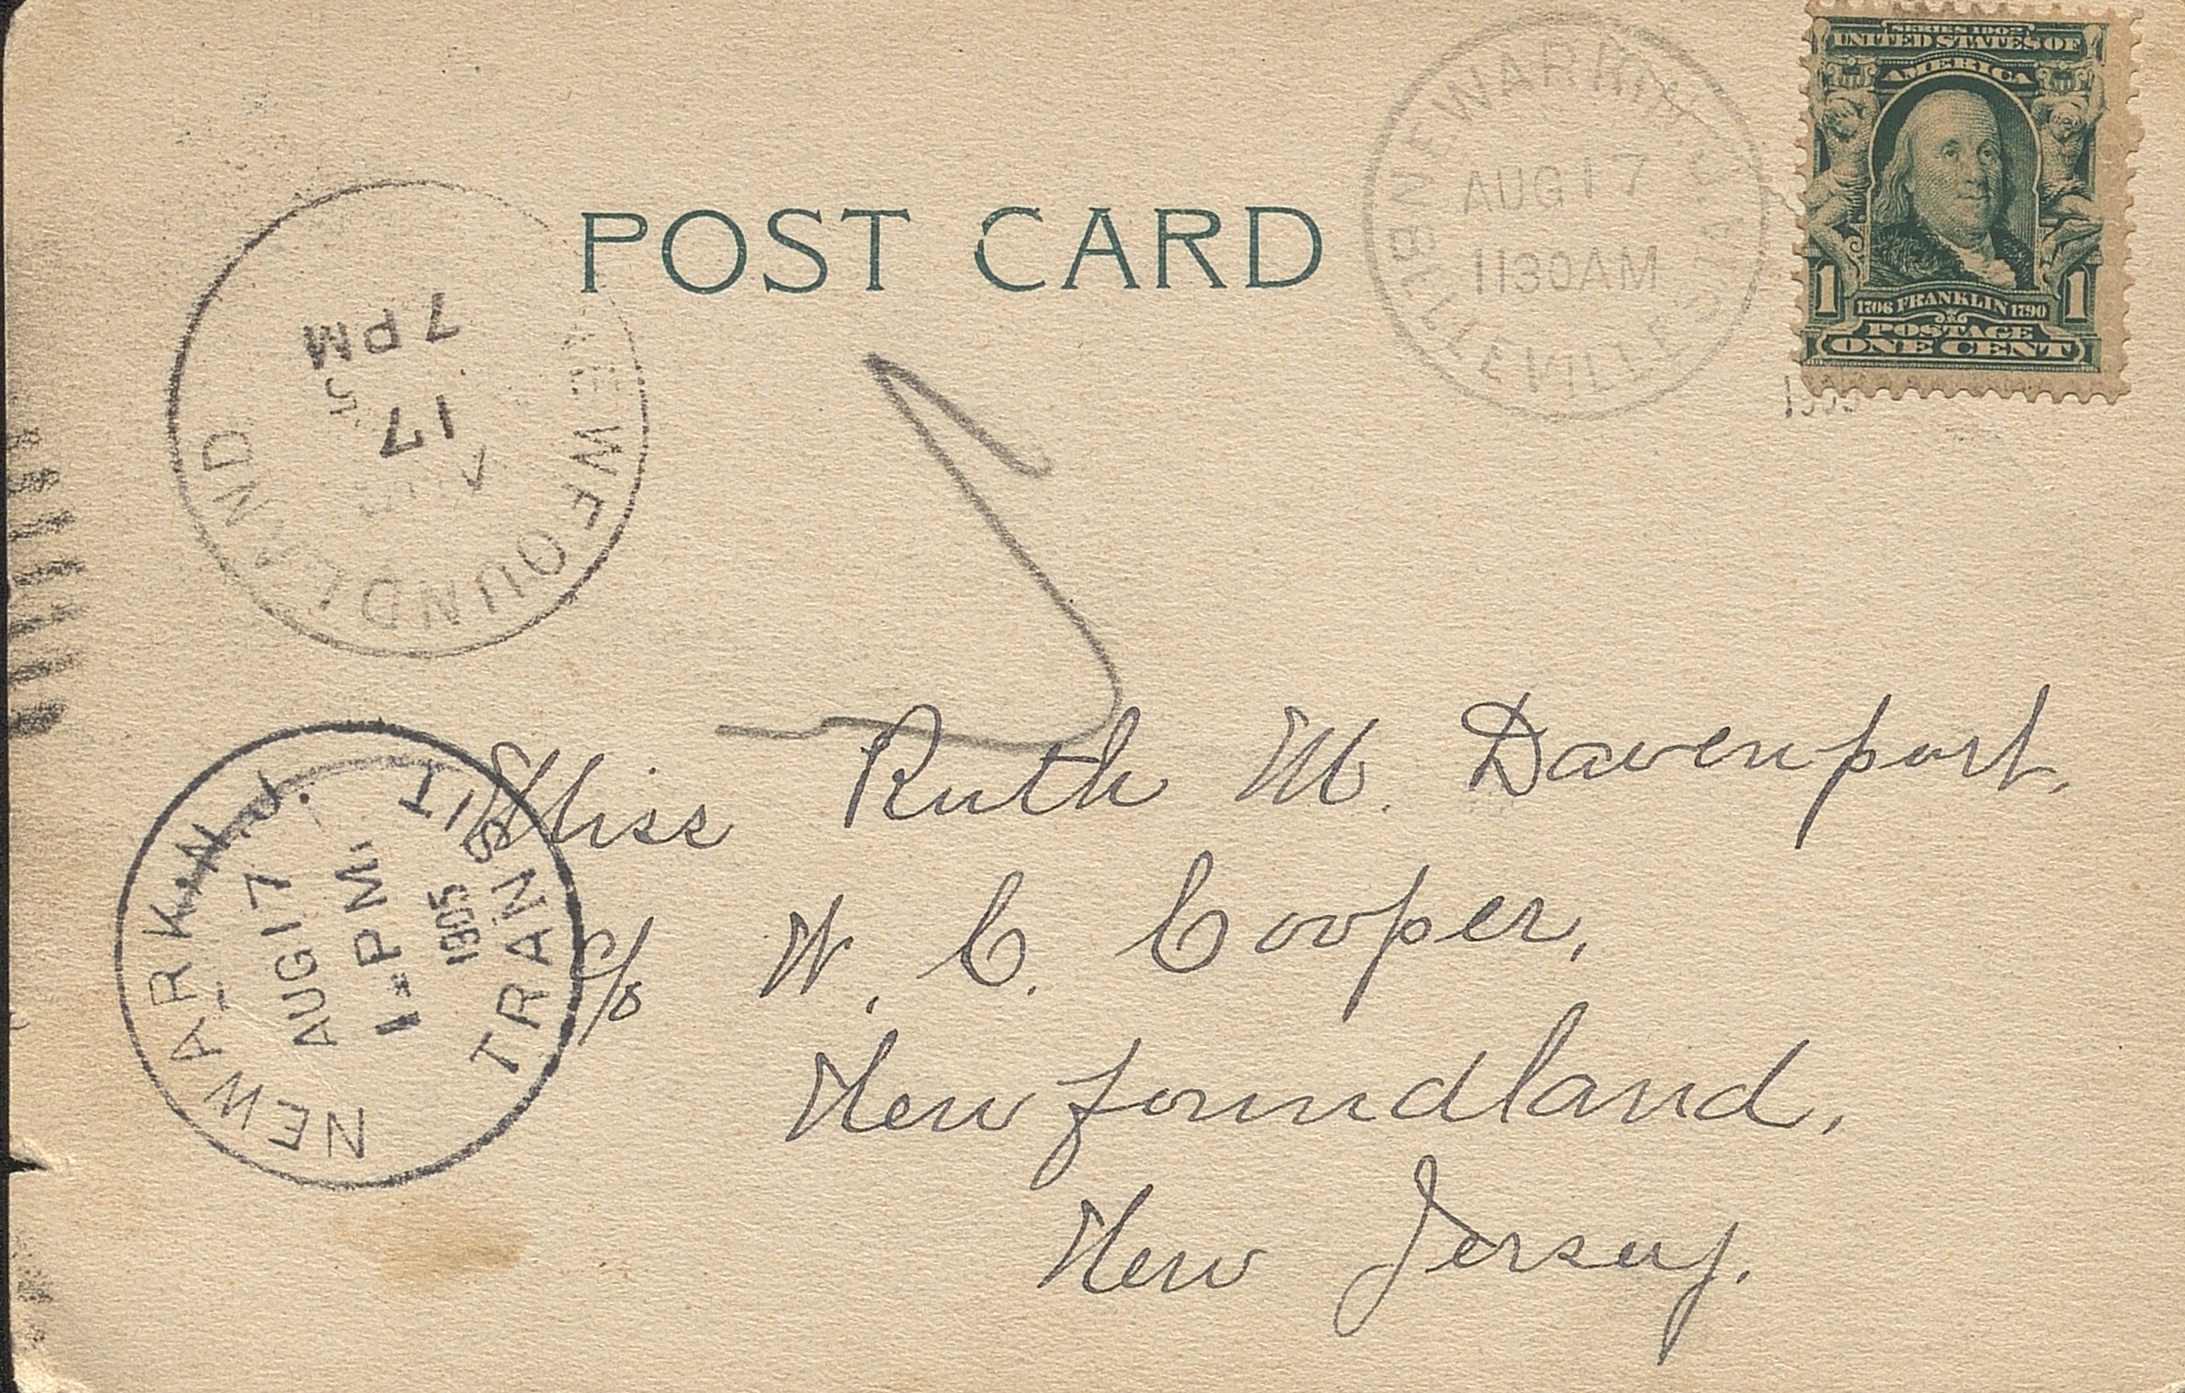 SERIES 1902
UNITED STATES OF
AMERICA
1706 FRANKLIN 1790
1 1
POSTAGE
ONE CENT
NEWARK N.J.
AUG 17
1130AM
BELLEVILLE STA.
1905
POST CARD
NEWFOUNDLAND
AUG
17
7 PM
NEWARK, N.J.
AUG 17
1 - PM
1905
TRANSIT
Miss Ruth M. Davenport,
c/o W. C. Cooper,
Newfoundland,
New Jersey.